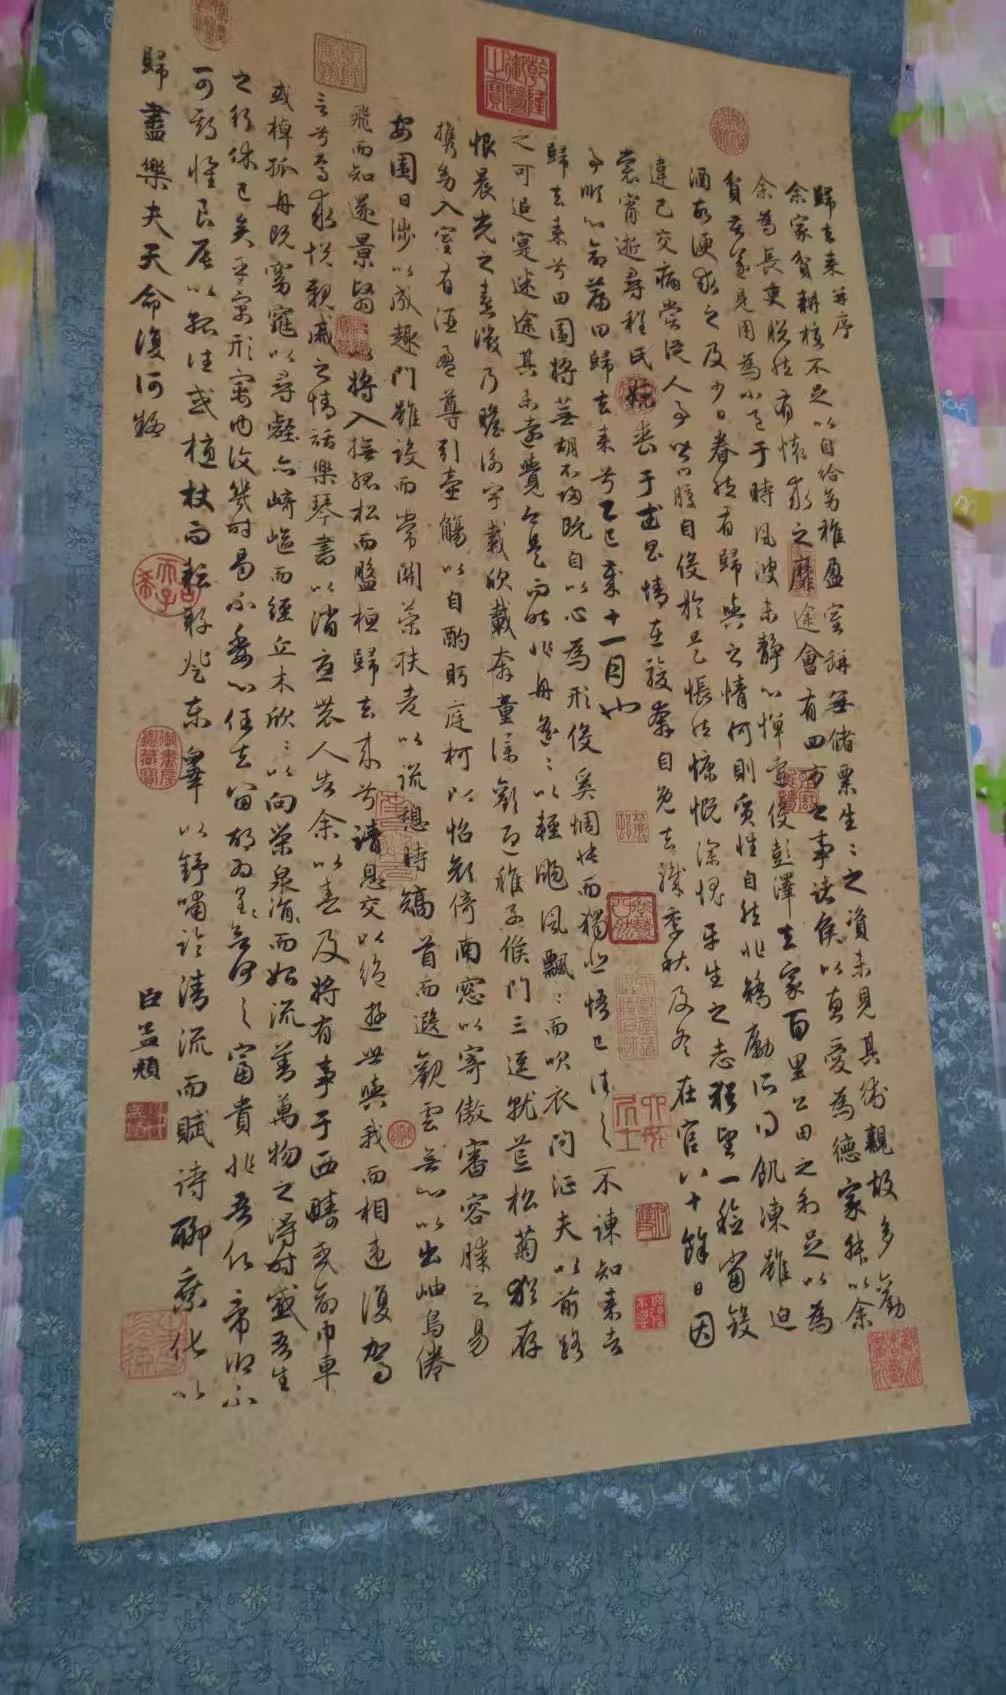 歸去来并序
余家貧耕植不足以自給幼稚盈室缾無儲粟生〻之資未見其術親故多勸
余為長吏脫然有懷求之靡途會有四方之事諸侯以惠愛為德家叔以余
貧苦遂見用為小邑于時風波未靜心憚遠役彭澤去家百里公田之利足以為
酒故便求之及少日眷然有歸與之情何則質性自然非矯勵所得飢凍雖迫
違己交病嘗從人事皆口腹自役於是悵然慷慨深愧平生之志猶望一稔當斂
裳宵逝尋程氏妹喪于武昌情在駿奔自免去職季秋及冬在官八十餘日因
事順心命篇曰歸去来兮乙巳歲十一月也
歸去来兮田園將蕪胡不歸既自以心為形役奚惆悵而獨悲悟已往之不諫知来者
之可追寔迷途其未遠覺今是而昨非舟遙〻以輕颺風飄〻而吹衣問征夫以前路
恨晨光之熹微乃瞻衡宇載欣載奔童僕歡迎稚子候門三逕就荒松菊猶存
攜幼入室有酒盈尊引壺觴以自酌眄庭柯以怡顏倚南窓以寄傲審容膝之易
安園日涉以成趣門雖設而常關策扶老以流憩時矯首而遐觀雲無心以出岫鳥倦
飛而知還景翳〻以將入撫孤松而盤桓歸去来兮請息交以絕遊世與我而相違復駕
言兮焉求悅親戚之情話樂琴書以消憂農人告余以春及將有事于西疇或命巾車
或棹孤舟既窈窕以尋壑亦崎嶇而經丘木欣〻以向榮泉涓〻而始流善萬物之得時感吾生
之行休已矣乎寓形宇內復幾時曷不委心任去留胡為遑〻欲何之富貴非吾願帝鄉不
可期懷良辰以孤往或植杖而耘耔登東皋以舒嘯臨清流而賦诗聊乘化以
歸盡樂夫天命復何疑
臣孟頫
乾隆御覽之寶